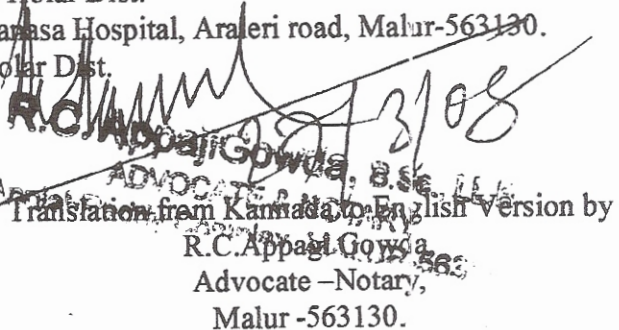 Kolar Dist.
anasa Hospital, Araleri road, Malur-563130.
olar Dist.
R.C. Appaji Gowda, B.Sc.
ADVOCATE
3/08
Translation from Kannada to English Version by
R.C.Appagi Gowda
Advocate –Notary,
Malur -563130.